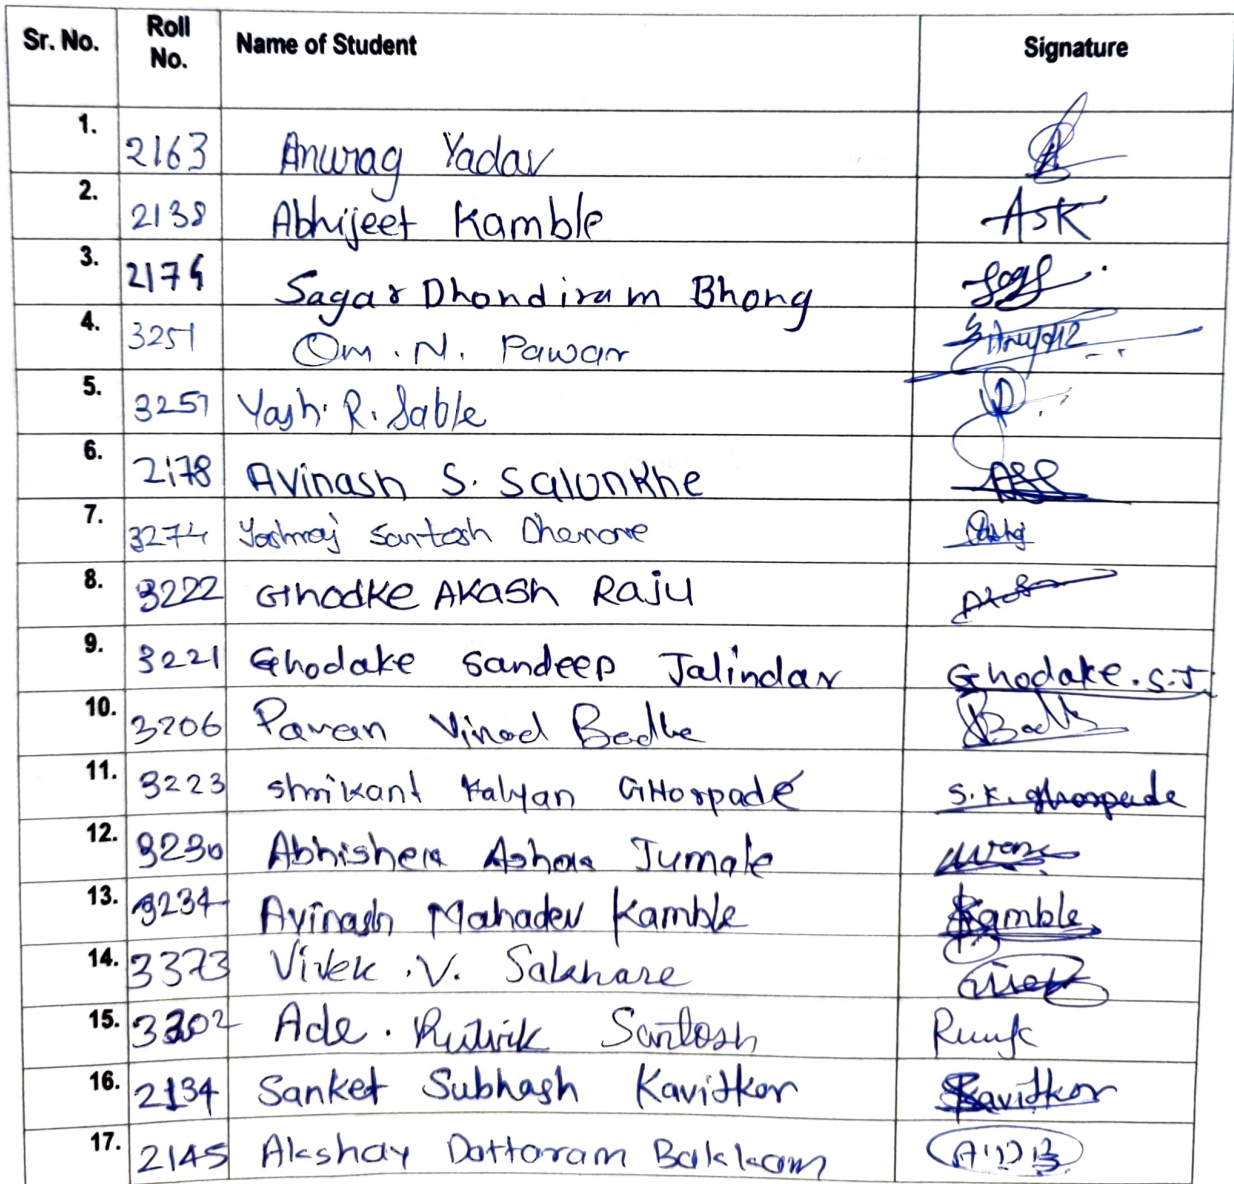 Sr. No. Roll No. Name of Student Signature
1. 2163 Anurag Yadav
2. 2138 Abhijeet Kamble ASK
3. Sagar Dhondiram Bhong
4. 3251 Om. N. Pawar
5. 3257 Yash. R. Sable
6. 2178 Avinash S. Salunkhe
7. 3274 Yashraj Santosh
8. 3222 Ghodke Akash Raju
9. 3221 Ghodake Sandeep Jalindar Ghodake.S.J.
10. 3206 Pavan Vinod Badhe
11. 3223 Shrikant Kalyan GHorpade S.K.ghorpade
12. 3230 Abhishek Ashok Jumale
13. 3234 Avinash Mahadev Kamble Kamble
14. 3373 Vivek .V. Sakhare
15. 3302 Ade. Rutwik Santosh
16. 2134 Sanket Subhash Kavitkar Kavitkar
17. 2145 Akshay Dattaram Bakkam